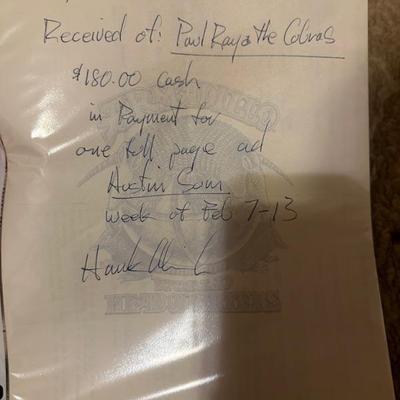 Received of: Paul Ray & the Cobras
$180.00 cash
in Payment for
one full page ad
Austin Sun
week of Feb 7-13
Hank
ARMADILLO
WORLD
HEADQUARTERS